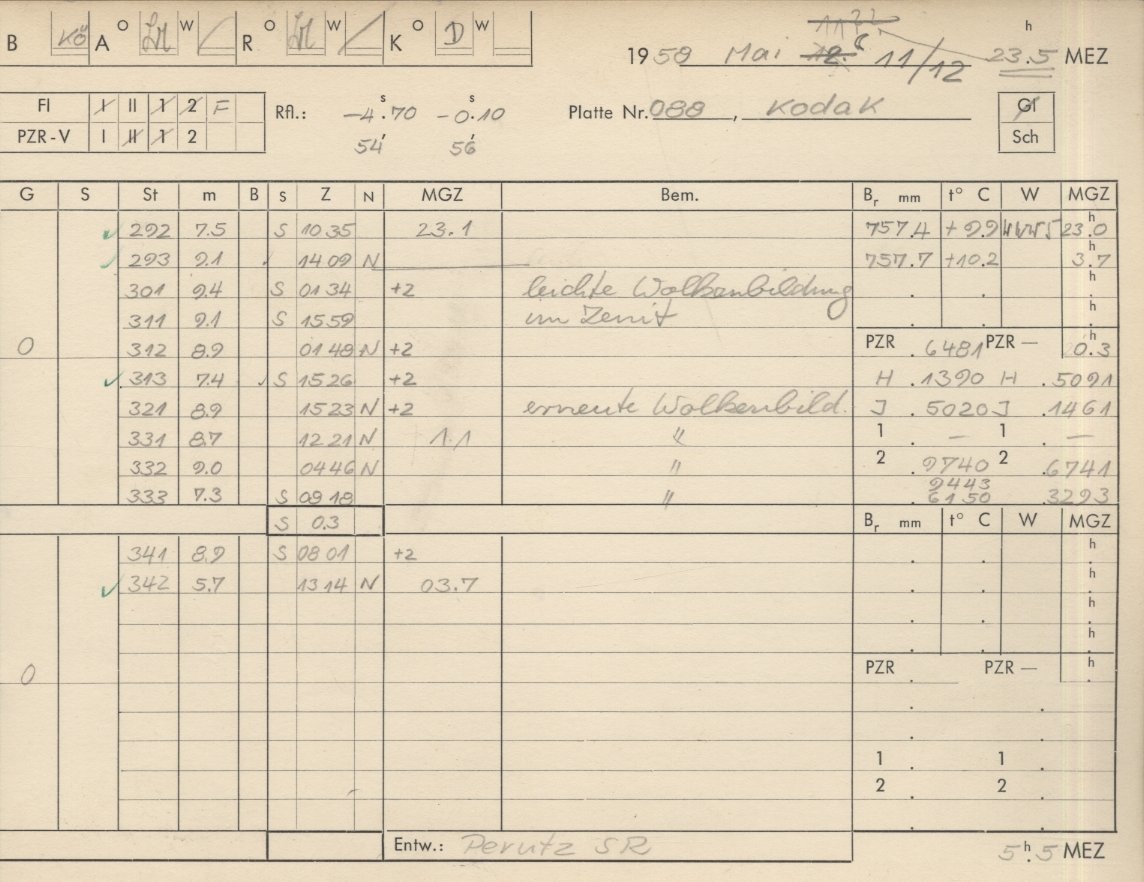 B Kö A O W R O W K O D W
1958 Mai 11/12 23.5 h MEZ
Fl I II 1 2 F
PZR-V I II 1 2
Rfl.: -4.70 s -0.10 s
54' 56'
Platte Nr. 088, Kodak
Gl
Sch
G S St m B S Z N MGZ Bem. Br mm t° C W MGZ
292 7.5 S 10 35 23.1 757.4 +9.9 23.0 h
293 9.1 14 09 N 757.7 +10.2 3.7 h
301 9.4 S 01 34 +2 leichte Wolkenbildung h
311 9.1 S 15 59 im Zenit h
0 312 8.9 01 48 N +2 PZR .6481 PZR — 0.3 h
313 7.4 S 15 26 +2 H .1390 H .5091
321 8.9 15 23 N +2 erneute Wolkenbild. J .5020 J .1461
331 8.7 12 21 N 1.1 " 1 — 1 —
332 9.0 04 46 N " 2 .9740 2 .6741
9443
333 7.3 S 09 18 " 6150 .3293
S 0.3 Br mm t° C W MGZ
341 8.9 S 08 01 +2 h
342 5.7 13 14 N 03.7 h
h
h
0 PZR PZR — h
1 1
2 2
Entw.: Perutz SR 5.5 h MEZ